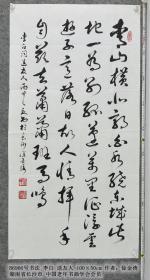 青山横北郭白水绕东城此
地一为别孤蓬万里征浮云
游子意落日故人情挥手
自兹去萧萧班马鸣
86900号书法 李白 送友人-100×50cm 作者：徐金
湖南省长沙市 中国老年书画学会会员